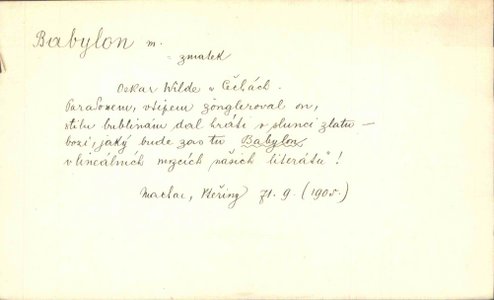 Babylon m.
= zmatek
Oskar Wilde v Čechách.
Paradoxem, vtipem žongleroval on,
stihu bublinám dal hráti v slunci zlatu —
bozi, jaký bude zas tu Babylon
v lineálních mozcích našich literátů!
Machar, 71. 9. (1905.)